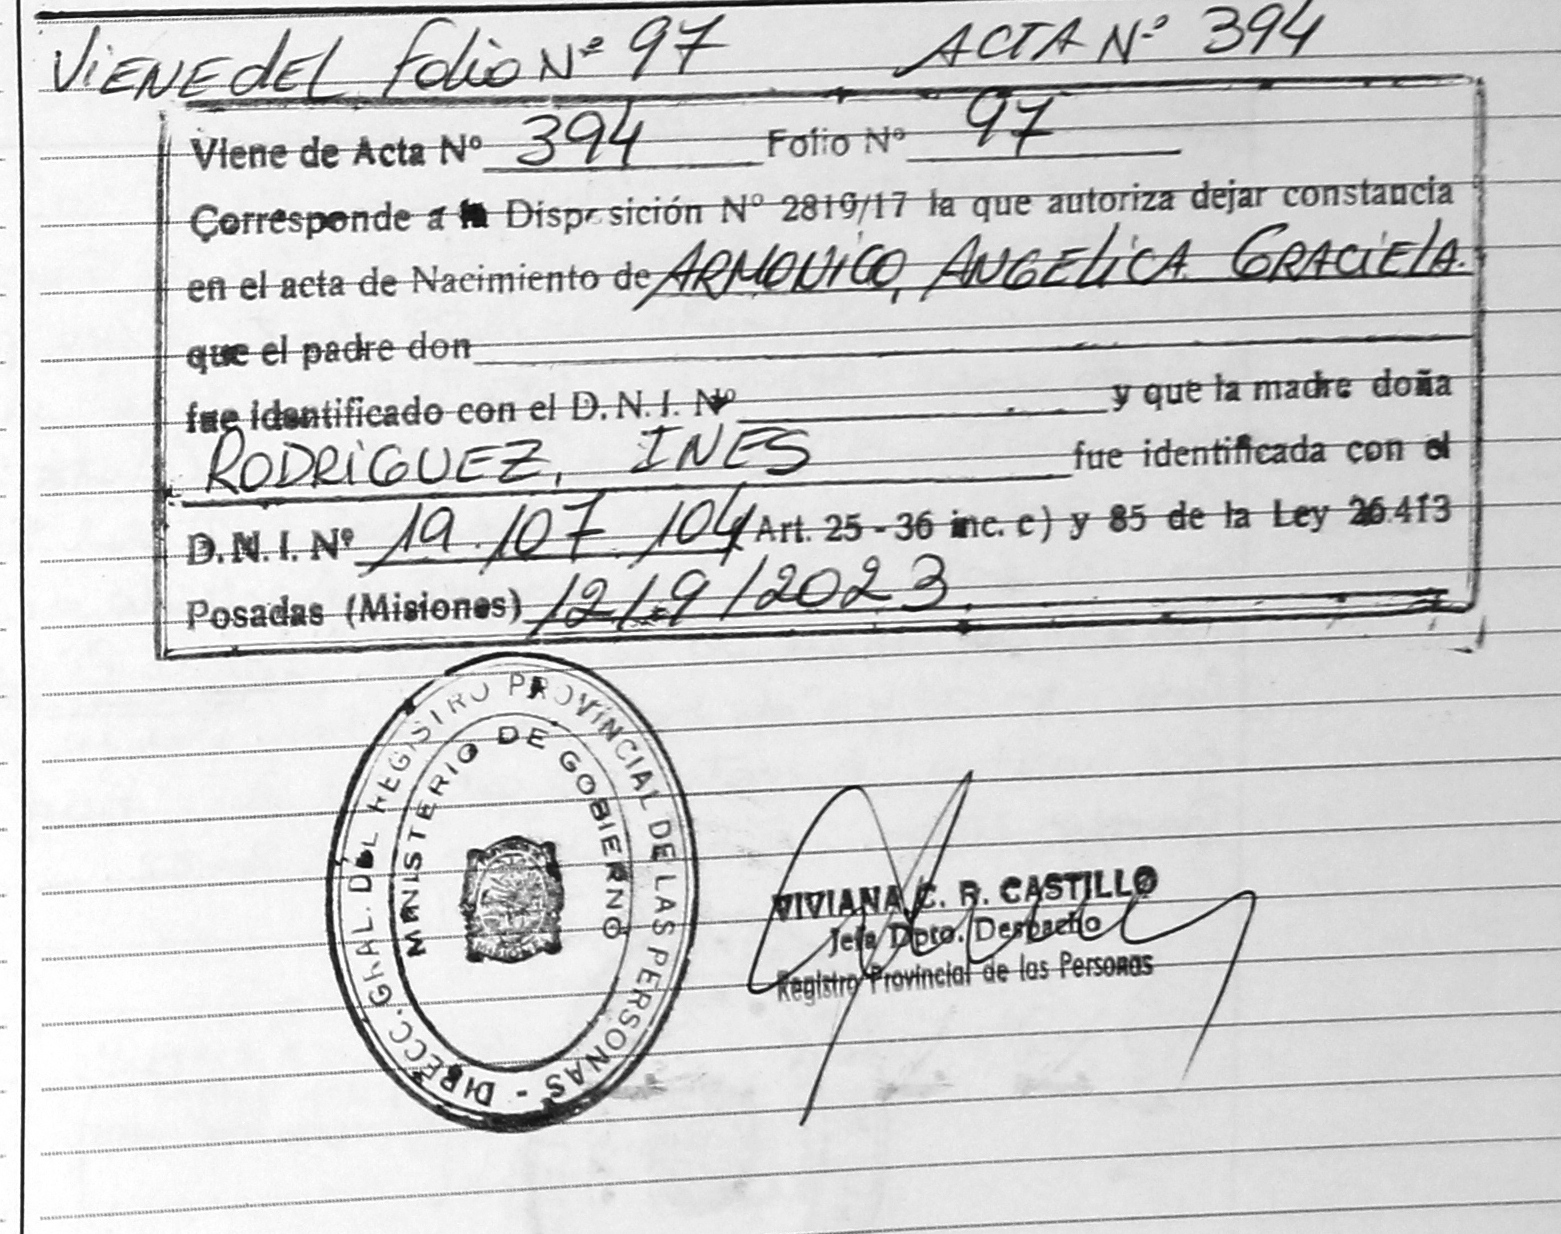 VIENE DEL Folio Nº 97 ACTA Nº 394
Viene de Acta Nº 394 Folio Nº 97
Corresponde a la Disposición Nº 2819/17 la que autoriza dejar constancia
en el acta de Nacimiento de ARMONICO, ANGELICA GRACIELA.
que el padre don
fue identificado con el D. N. I. Nº y que la madre doña
RODRIGUEZ, INES fue identificada con el
D. N. I. Nº 19.107.104 Art. 25 - 36 inc. c) y 85 de la Ley 26.413
Posadas (Misiones) 12/9/2023.
DIRECC. GRAL. DEL REGISTRO PROVINCIAL DE LAS PERSONAS -
MINISTERIO DE GOBIERNO
VIVIANA C. R. CASTILLO
Jefa Dpto. Despacho
Registro Provincial de las Personas